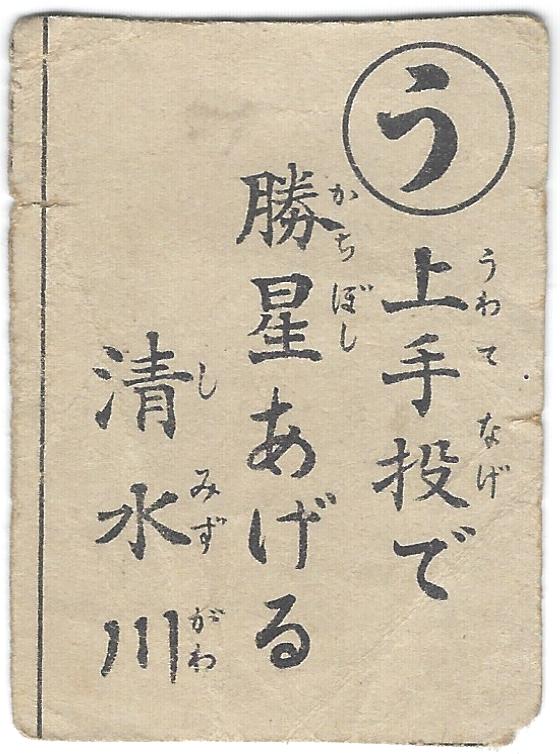 う
上手投で
うわてなげ
勝星あげる
かちぼし
清水川
しみずがわ